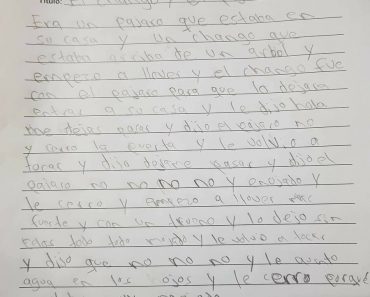 Titulo: El chango y el
Era un pajaro que estaba en
su casa y un chango que
estaba arriba de un arbol y
empezo a llover y el chango fue
con el pajaro para que lo dejara
entrar a su casa y le dijo hola
me dejas pasar y dijo el pajaro no
y cerro la puerta y le volvio a
tocar y dijo dejame pasar y dijo el
pajaro no no no no y enojado y
le cerro y empezo a llover mas
fuerte y con un trueno y lo dejo sin
todo todo mojado y le volvio a tocar
y dijo que no no no y le
agua en los ojos y le cerro porque